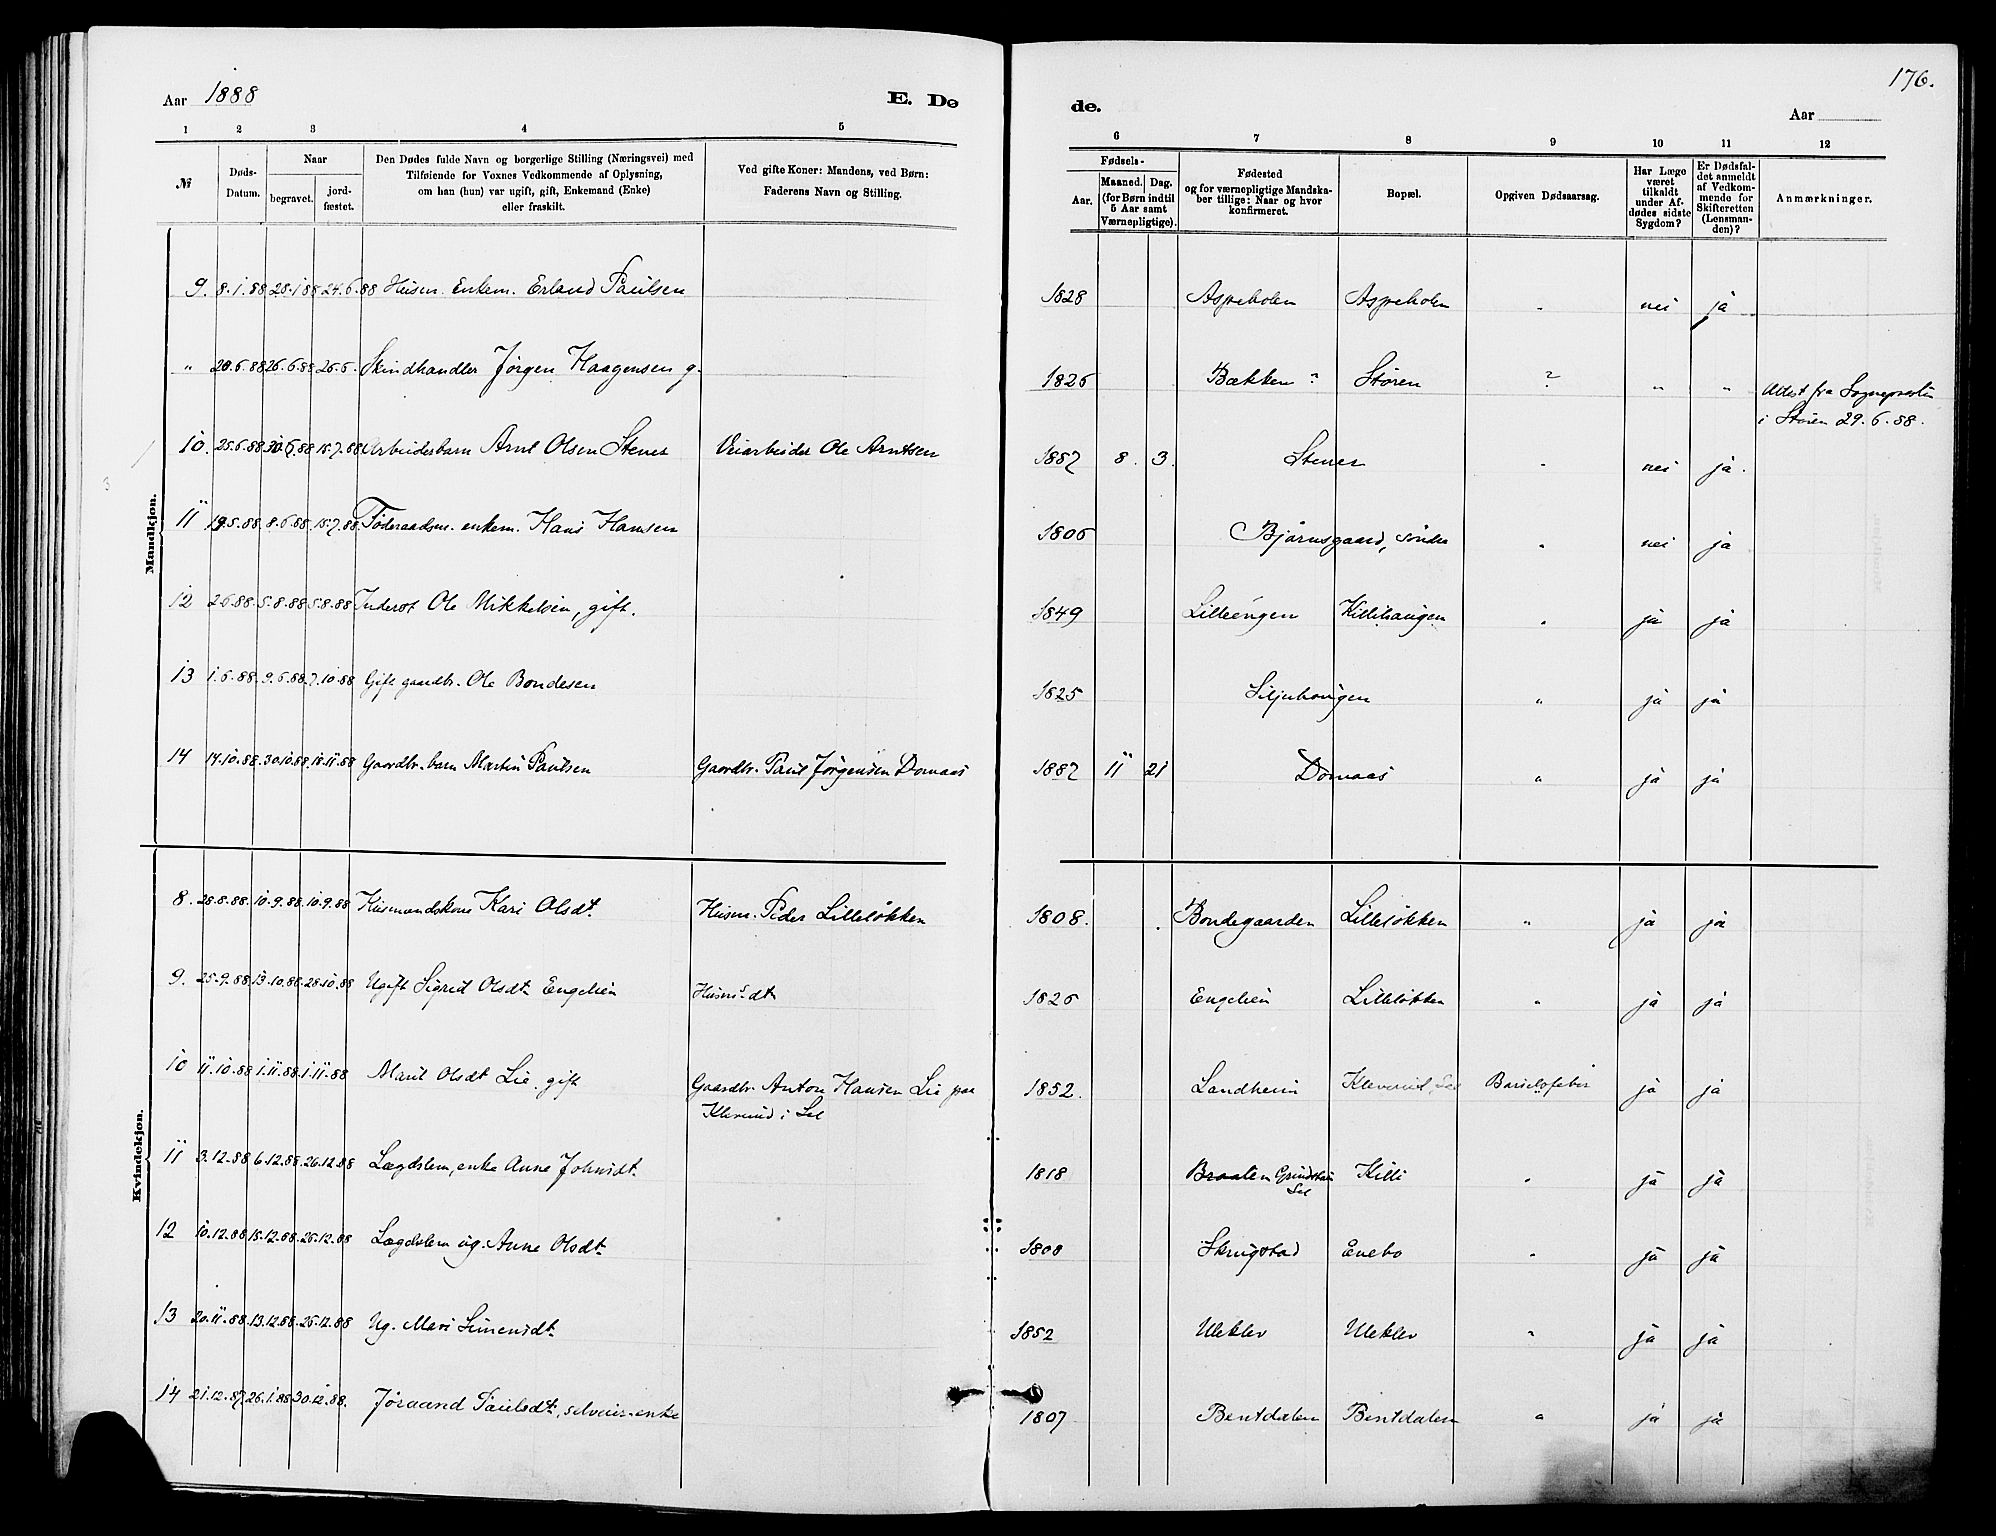 Aar 1888
E. Dø
de.
176.
Aar
1 2 3 4 5 6 7 8 9 10 11 12
№
Døds-
Datum.
Naar
begravet.
jord-
fæstet.
Den Dødes fulde Navn og borgerlige Stilling (Næringsvei) med
Tilføiende for Voxnes Vedkommende af Oplysning,
om han (hun) var ugift, gift, Enkemand (Enke)
eller fraskilt.
Ved gifte Koner: Mandens, ved Børn:
Faderens Navn og Stilling.
Fødsels-
Aar.
Maaned. Dag.
(for Børn indtil
5 Aar samt
Værnepligtige).
Fødested
og for værnepligtige Mandska-
ber tillige: Naar og hvor
konfirmeret.
Bopæl.
Opgiven Dødsaarsag.
Har Læge
været
tilkaldt
under Af-
dødes sidste
Sygdom?
Er Dødsfal-
det anmeldt
af Vedkom-
mende for
Skifteretten
(Lensman-
den)?
Anmærkninger.
Mandkjøn.
9. 8.1.88 28.1.88 24.6.88 Husm. Enkem. Erland Paulsen 1828 Aspeholen Aspeholen " nei ja
" 20.6.88 26.6.88 26.6. Skindhandler Jørgen Haagensen g. 1826 Bækken ? Støren ? " " Attest fra Sognepresten
i Støren 29.6.88.
10. 25.6.88 30.6.88 15.7.88 Arbeiderbarn Arnt Olsen Stener Veiarbeider Ole Arntsen 1887 8. 3. Stener " nei ja.
11 19.5.88 8.6.88 15.7.88 Føderaadsm. enkem. Hans Hansen 1806 Bjørnsgaard, søndre " nei ja
12 2.6.88 5.8.88 5.8.88 Inderst Ole Mikkelsen, gift. 1849 Lilleengen Killihaugen " ja ja
13 1.6.88 9.6.88 7.10.88 Gift gaardbr. Ole Bondesen 1825 Siljuhaugen " ja ja
14 14.10.88 30.10.88 18.11.88 Gaardbr. barn Martin Paulsen Gaardbr. Paul Jørgensen Domaas 1887 11 21 Domaas " ja ja
Kvindekjøn.
8. 28.8.88 10.9.88 10.9.88 Husmandskone Kari Olsdt. Husm. Peder Lilleløkken 1808. Bondegaarden Lilleløkken " ja ja
9. 25.9.88 13.10.88 28.10.88 Ugift Sigrid Olsdt. Engelien Husm.s dt. 1826 Engelien Lilleløkken " ja ja
10 11.10.88 1.11.88 1.11.88 Marit Olsdt Lie. gift Gaardbr. Anton Hansen Lie paa
Kleverud i Sel 1852. Landheim Kleverud, Sel Barselsfeber ja ja
11 3.12.88 6.12.88 26.12.88 Lægdslem, enke Anne Johnsdt. 1818 Braaten Grindstuen
Sel Killi " ja ja
12 10.12.88 15.12.88 26.12.88 Lægdslem ug. Anne Olsdt. 1808 Skrugstad Enebo " ja ja
13 20.11.88 13.12.88 26.12.88 Ug. Mari Simensdt. 1852 Uleklev Uleklev " ja ja
14 21.12.87 26.1.88 30.12.88. Jøraand Paulsdt., selveier-enke 1807 Bentdalen Bentdalen " ja ja